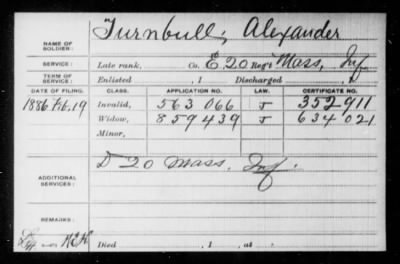 NAME OF SOLDIER: Turnbull, Alexander
SERVICE: Late rank, Co. E 20 Reg't Mass, Inf
TERM OF SERVICE: Enlisted , 1 Discharged , 1
DATE OF FILING. CLASS. APPLICATION NO. LAW. CERTIFICATE NO.
1886 Feb. 19 Invalid, 563 066 J 352911
Widow, 859439 J 634021
Minor,
ADDITIONAL SERVICES: D 20 Mass. Inf.
REMARKS:
Died , 1 , at